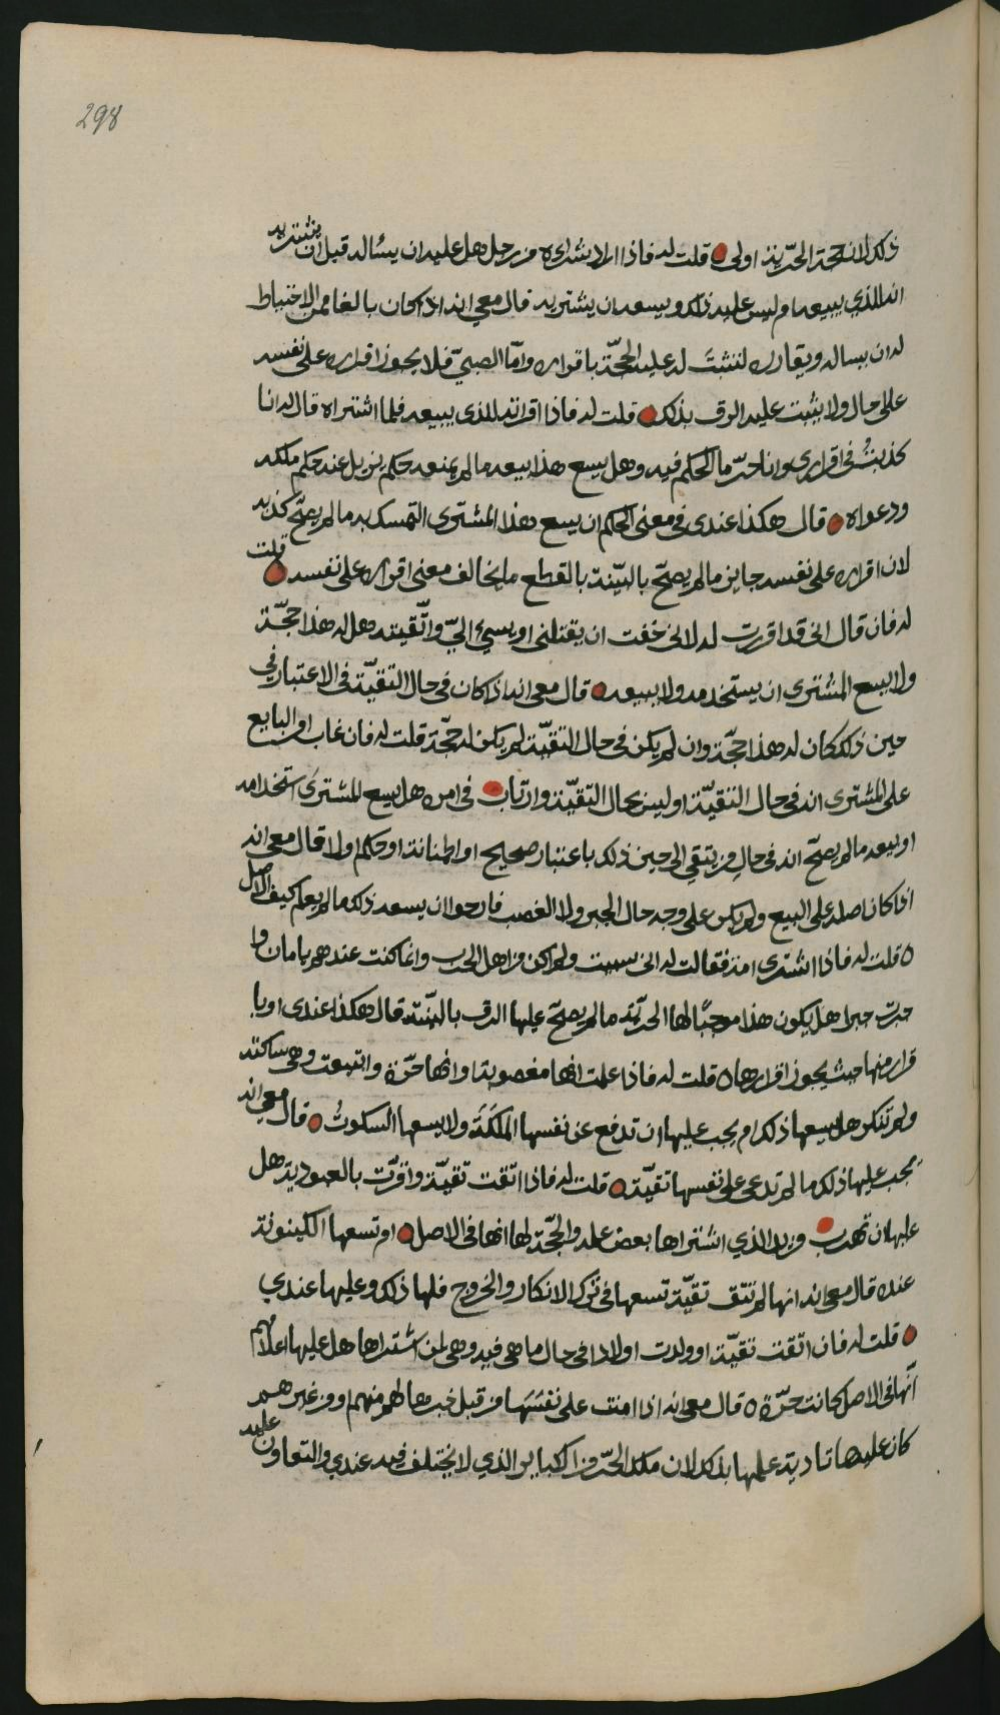 298
ذلك لان حجة الحرّية اولى قلت له فاذا اراد شراءه من رجل هل عليه ان يسأله قبل ان يشتريه
انه للذي يبيعه ام ليس عليه ذلك ويسعه ان يشتريه قال معي انه اذا كان بالغا فمن الاحتياط
له ان يساله ويقارره لتثبتَ له عليه الحجّة باقراره وامّا الصبيّ فلا يجوز اقراره على نفسه
على حال ولا يثبت عليه الرق بذلك قلت له فاذا اقر انه للذى يبيعه فلما اشتراه قال له انا
كذبتُ فى اقرارى وانا حرّ ما الحكم فيه وهل يسع هذا بيعه ما لم يمنعه حكم يزيل عنه حكم ملكه
ودعواه قال هكذا عندى فى معنى الحكم ان يسع هذا المشترى التمسك به ما لم يصحّ كذبه
لان اقراره على نفسه جايز ما لم يصحّ بالبيّنة بالقطع ما يخالف معنى اقراره على نفسه قلت
له فان قال انى قد اقررت له لانى خفت ان يقتلنى او يسيئ اليّ واتّقيته هل له هذا حجّة
ولا يسع المشترى ان يستخدمه ولا يبيعه قال معى انه اذا كان فى حال التقيّة فى الاعتبار في
حين ذلك كان له هذا حجّة وان لم يكن فى حال التقيّة لم يكن له حجّة قلت له فان غاب امر البايع
على المشترى انه فى حال التقيّة او ليس بحال التقيّة وارتاب فى امره هل يسع للمشترى استخدامه
او بيعه ما لم يصحّ انه فى حال من يتقي الى حين ذلك باعتبار صحيح او اطمنانة او حكم او لا قال معى انه
اذا كان اصله على البيع ولم يكن على وجه حال الجبر ولا الغصب فارجوا ان يسعه ذلك ما لم يعلم كيف الاصل
قلت له فاذا اشترى امة فقالت له انى سبيت ولم اكن من اهل الحرب وانما كنت عندهم بامان وا
جبرت جبرا هل يكون هذا موجبًا لها الحرّية ما لم يصحّ عليها الرق بالبيّنة قال هكذا عندى او با
قرار منها حيث يجوز اقرارها قلت له فاذا علمت انها مغصوبة وانها حرّة وابتيعت وهى ساكتة
ولم تنكر هل يسعها ذلك ام يجب عليها ان تدفع عن نفسها الملكة ولا يسعها السكوتُ قال معى انه
يجب عليها ذلك ما لم تدعى على نفسها تقيّة قلت له فاذا اتّقت تقيّة واقرّت بالعبودية هل
عليها ان تهرب من يد الذي اشتراها بعض علمه والحجّة لها انها فى الاصل ام تسعها الكينونة
عنده قال معى انه انها لم تتق تقيّة تسعها فى ترك الانكار والخروج فلها ذلك وعليها عندي
قلت له فان اتقت تقيّة او ولدت اولادا فى حال ما هى فيه وهى لمن اشتراها هل عليها اعلامهم
انّها فى الاصل كانت حرّة قال معى انه اذا امنت على نفسها من قبل خبرها لهم منهم او من غيرهم
كان عليها تادية علمها بذلك لان ملك الحرّ من الكباير الذي لا يختلف فيه عندي والتعاون عليه